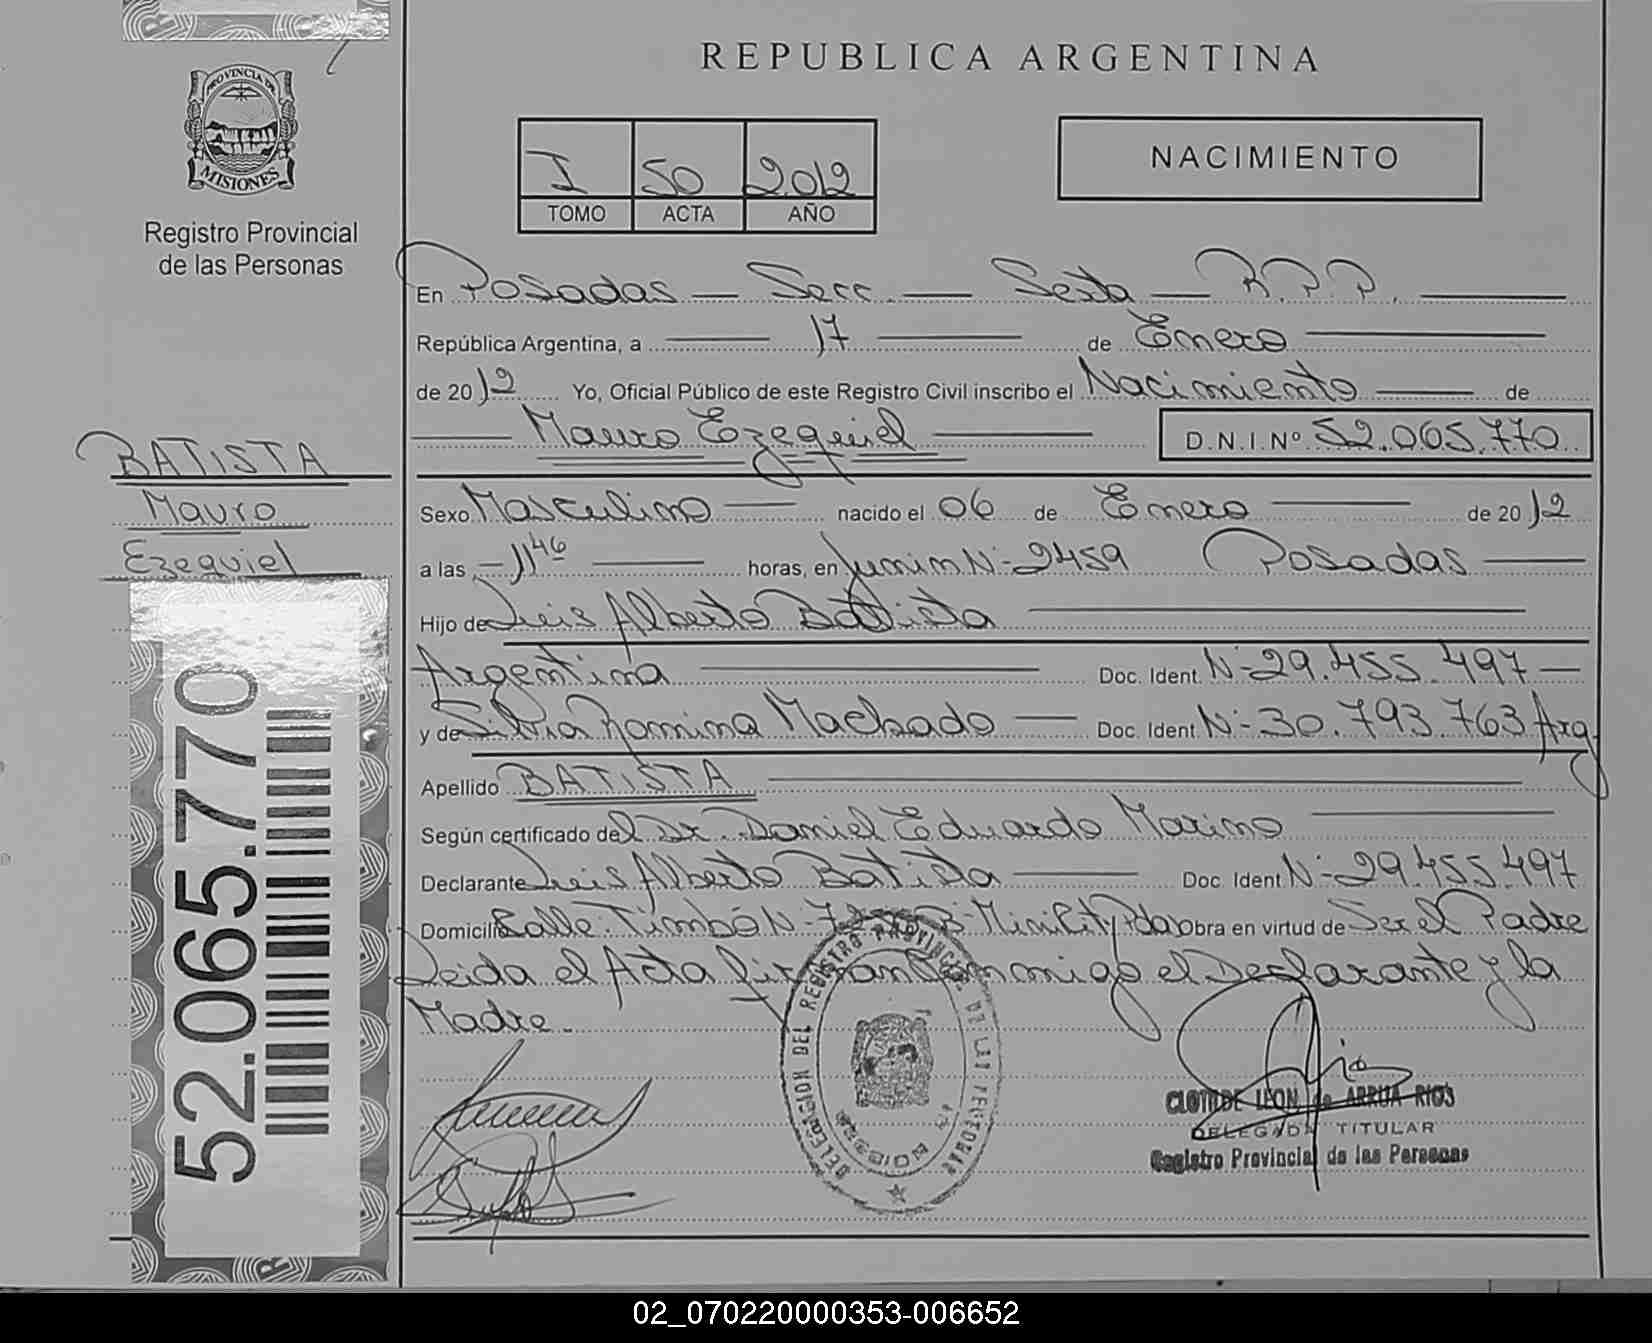 REPUBLICA ARGENTINA
PROVINCIA DE
MISIONES
Registro Provincial
de las Personas
I 50 2012
TOMO ACTA AÑO
NACIMIENTO
En Posadas — Secc. — Sexta — R.P.P. —
República Argentina, a — 17 — de Enero —
de 2012 Yo, Oficial Público de este Registro Civil inscribo el Nacimiento — de
— Mauro Ezequiel — D.N.I. Nº 52.065.770
BATISTA
Mauro
Ezequiel
52.065.770
Sexo Masculino — nacido el 06 de Enero — de 2012
a las — 11 46 — horas, en Junin N:-2459 Posadas —
Hijo de Luis Alberto Batista —
Argentina — Doc. Ident. N:-29.455.497 —
y de Silvia Romina Machado — Doc. Ident. N:-30.793.763 Arg
Apellido BATISTA —
Según certificado del Dr. Daniel Eduardo Marino —
Declarante Luis Alberto Batista — Doc. Ident. N:-29.455.497
Domicilio Calle: Timbó N:- Bº Mini City Pdas Obra en virtud de Ser el Padre
Leida el Acta firman conmigo el Declarante y la
Madre.
DELEGACION DEL REGISTRO PROVINCIAL DE LAS PERSONAS
CLOTILDE LEON de ARRUA RIOS
DELEGADA TITULAR
Registro Provincial de las Personas
02_070220000353-006652